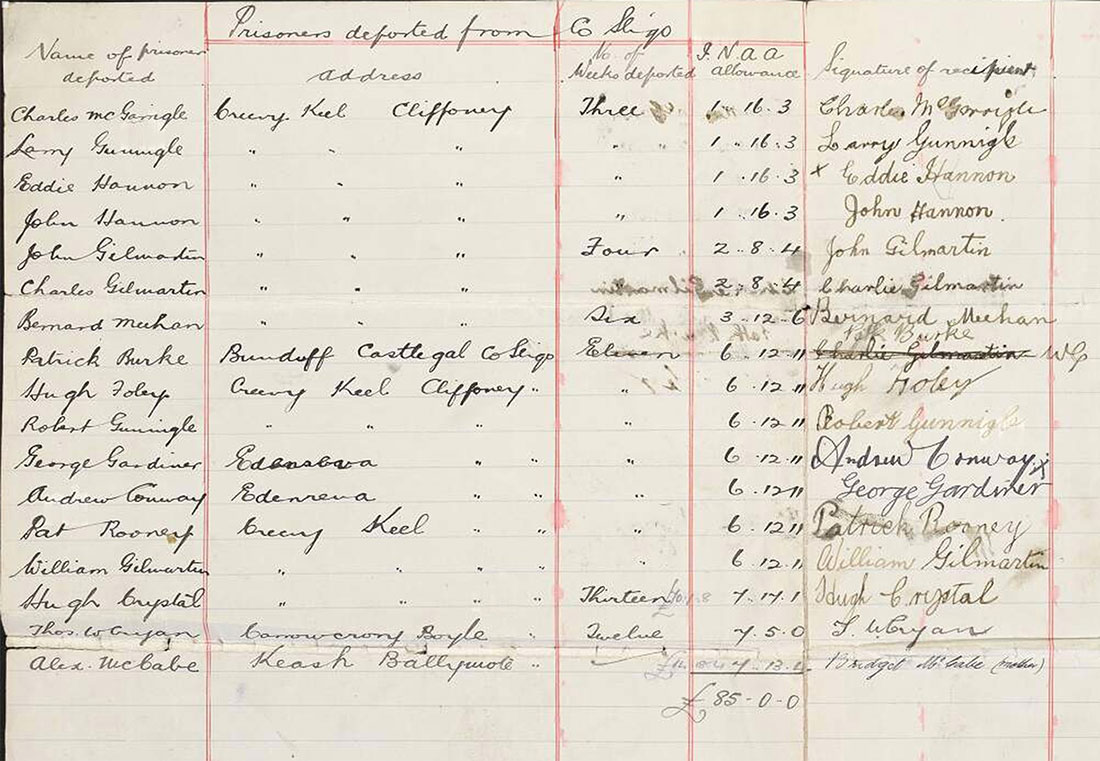 Prisoners deported from Co Sligo
Name of prisoner deported address No. of Weeks deported I. N. A A allowance Signature of recipient
Charles McGarrigle Creevy Keel Cliffoney Three 1 .. 16 . 3 Charles McGarrigle
Larry Gunnigle " " " " 1 .. 16 . 3 Larry Gunnigle
Eddie Hannon " " " " 1 .. 16 . 3 x Eddie Hannon
John Hannon " " " " 1 .. 16 . 3 John Hannon.
John Gilmartin " " " Four 2 .. 8 . 4 John Gilmartin
Charles Gilmartin " " " " 2 . 8 . 4 Charlie Gilmartin
Bernard Meehan " " " Six 3 . 12 . 6 Bernard Meehan
Patk Burke
Patrick Burke Bunduff Castlegal Co Sligo Eleven 6 . 12 . 11 Charlie Gilmartin
Hugh Foley Creevy Keel Cliffoney " " 6 . 12 . 11 Hugh Foley
Robert Gunnigle " " " " 6 . 12 . 11 Robert Gunnigle
George Gardiner " " " 6 . 12 . 11 Andrew Conway x
Andrew Conway Edenreva " " " 6 . 12 11 George Gardiner
Pat Rooney Creevy Keel " " " 6 . 12 11 Patrick Rooney
William Gilmartin " " " " " 6 . 12 . 11 William Gilmartin
Hugh Crystal " " " " Thirteen 7 . 17 . 1 Hugh Crystal
Carrowcrory Boyle " Twelve 7 . 5 . 0
Alex. McCabe Keash Ballymote " Bridget McCabe (mother)
£85-0-0